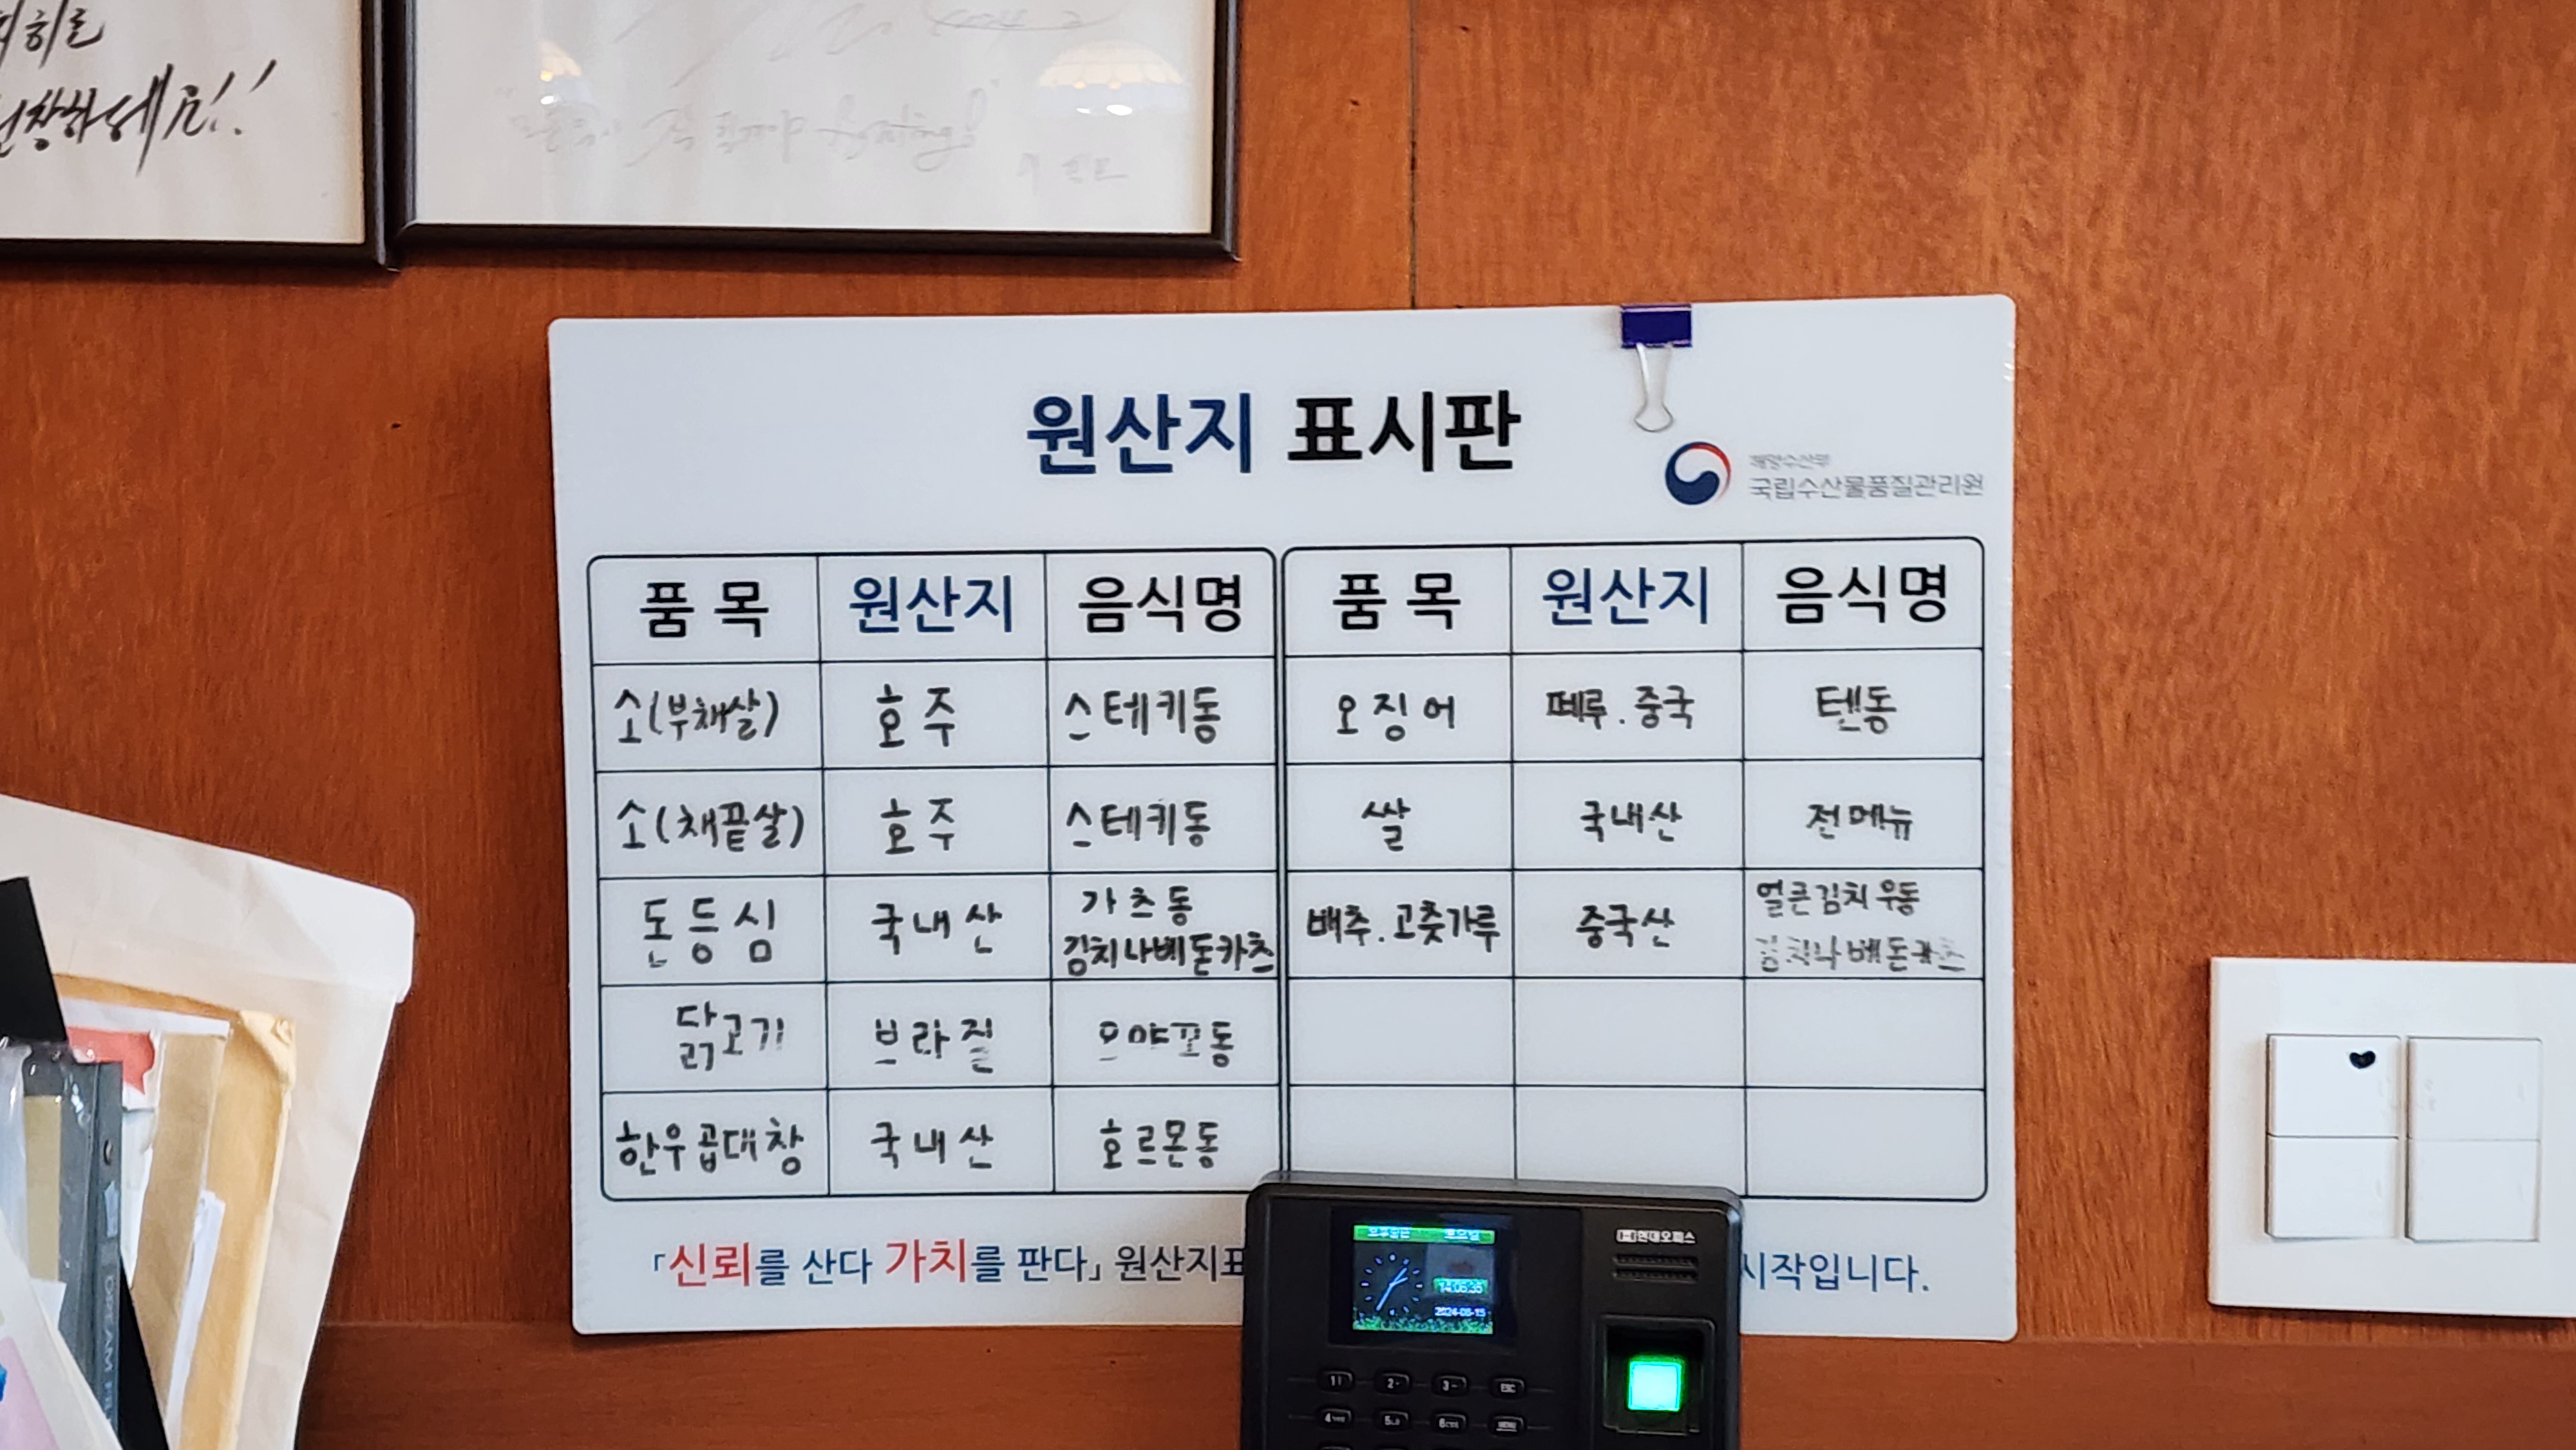 하세요!!
원산지 표시판
해양수산부
국립수산물품질관리원
품목 원산지 음식명 품목 원산지 음식명
소(부채살) 호주 스테키동 오징어 페루.중국 텐동
소(채끝살) 호주 스테키동 쌀 국내산 전메뉴
돈등심 국내산 가츠동 김치나베돈카츠 배추.고춧가루 중국산 얼큰김치우동 김치나베돈카츠
닭고기 브라질 오야꼬동
한우곱대창 국내산 호르몬동
「신뢰를 산다 가치를 판다」 원산지표 시작입니다.
현대오피스
14:05:35
2024-06-15
1 2 3 ESC
4 5 6 MENU